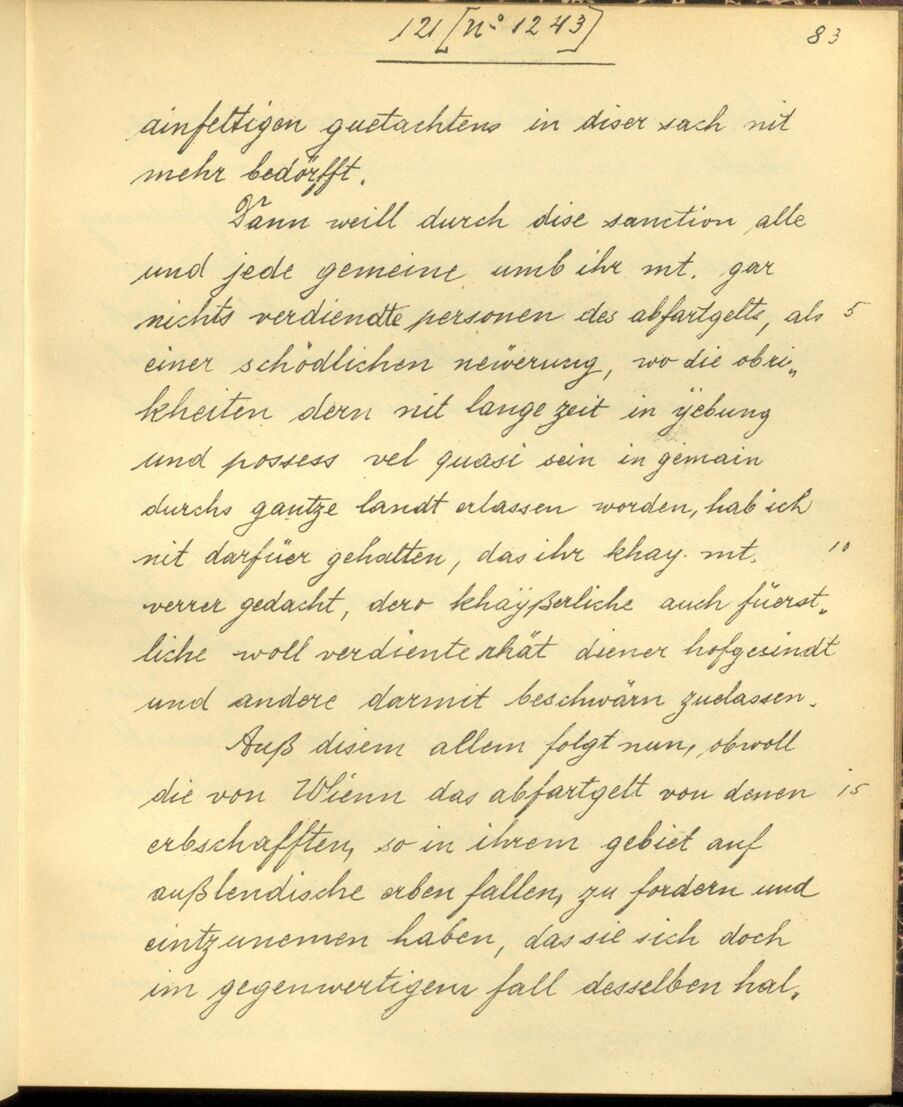 121 [N° 1243]
83
ainfeltigen guetachtens in diser sach nit
mehr bedörfft.
Dann weill durch dise sanction alle
und jede gemeine umb ihr mt. gar
nichts verdiendte personen des abfartgelts, als 5
einer schödlichen neẅerung, wo die obri„
kheiten dern nit lange zeit in ÿebung
und possess vel quasi sein in gemain
durchs gantze landt erlassen worden, hab ich
nit darfüer gehalten, das ihr khay. mt. 10
verrer gedacht, dero khaÿßerliche auch füerst„
liche woll verdiente rhät diener hofgesindt
und andere darmit beschwärn zuelassen.
Auß disem allem folgt nun, obwoll
die von Wienn das abfartgelt von denen 15
erbschafften, so in ihrem gebiet auf
außlendische erben fallen, zu fordern und
eintzunemen haben, das sie sich doch
im gegenwertigem fall desselben hal„